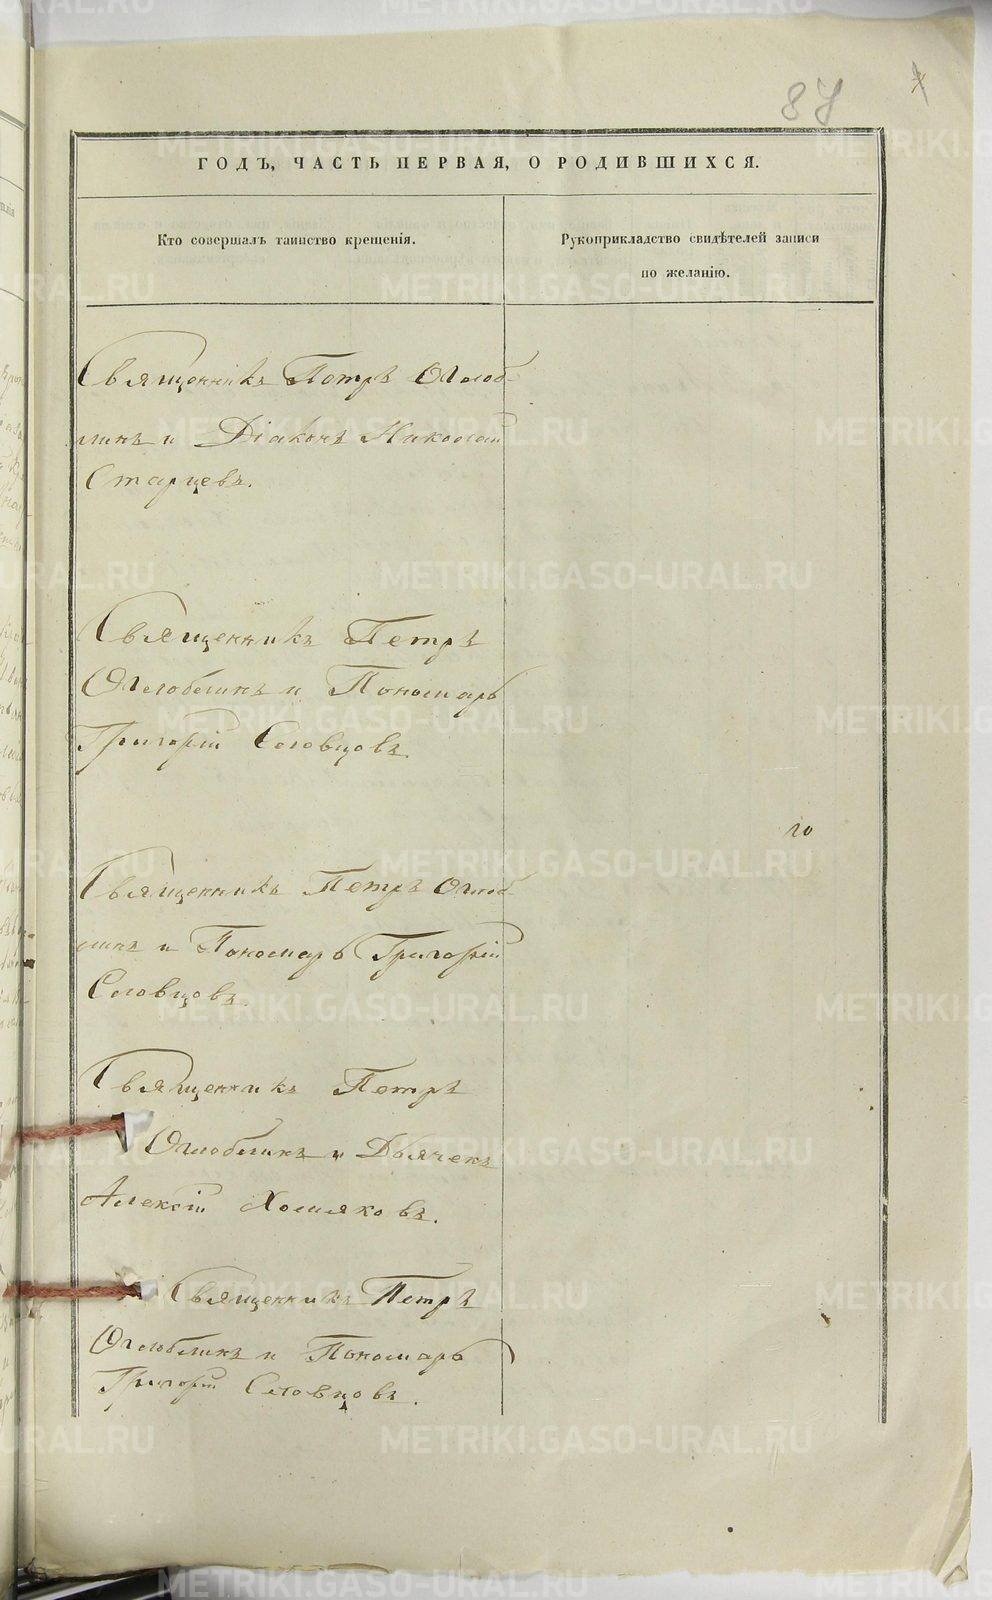 87
ГОДЪ, ЧАСТЬ ПЕРВАЯ, О РОДИВШИХСЯ.
Кто совершалъ таинство крещенія.
Рукоприкладство свидѣтелей записи
по желанію.
Священникъ Петръ Оглоб-
линъ и Діаконъ Николай
Старцевъ.
Священникъ Петръ
Оглоблинъ и Пономарь
Григорій Словцовъ.
го
Священникъ Петръ Оглоб-
линъ и Пономарь Григорій
Словцовъ.
Священникъ Петръ
Оглоблинъ и Дьячекъ
Алексій Хомяковъ.
Священникъ Петръ
Оглоблинъ и Пономарь
Григорій Словцовъ.
METRIKI.GASO-URAL.RU